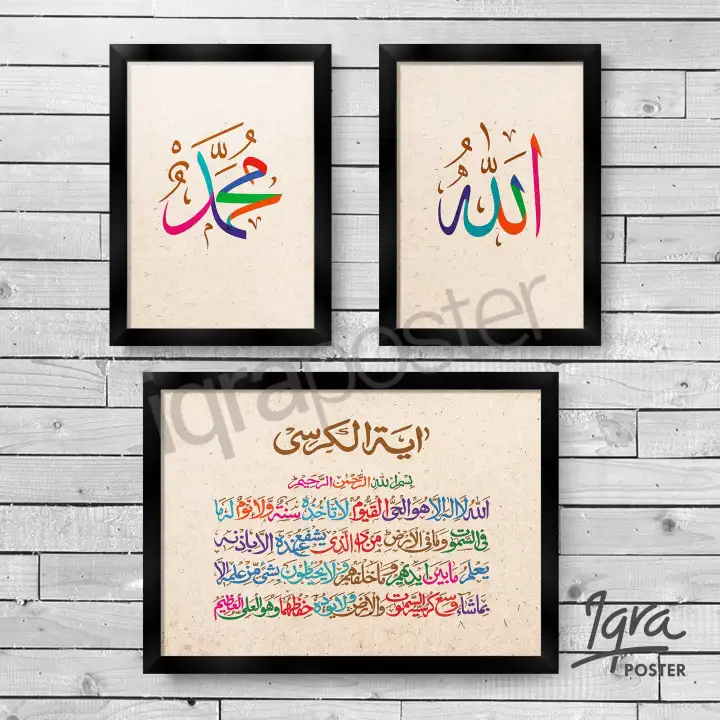 الله
محمد
آية الكرسي
بسم الله الرحمن الرحيم
الله لا إله إلا هو الحي القيوم لا تأخذه سنة ولا نوم له ما
في السموت وما في الأرض من ذا الذي يشفع عنده إلا بإذنه
يعلم ما بين أيديهم وما خلفهم ولا يحيطون بشيء من علمه إلا
بما شاء وسع كرسيه السموت والأرض ولا يؤده حفظهما وهو العلي العظيم
iqraposter
Iqra
POSTER